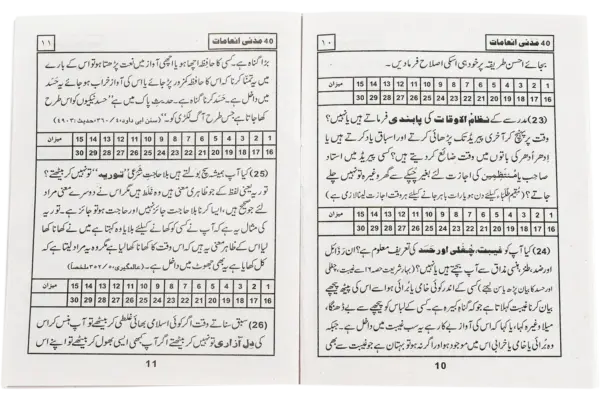 40 مدنی انعامات
۱۰
بجائے احسن طریقہ پر خود ہی اسکی اصلاح فرما دیں۔
1 2 3 4 5 6 7 8 9 10 11 12 13 14 15 میزان
16 17 18 19 20 21 22 23 24 25 26 27 28 29 30
(23) مدرسے کے نظام الاوقات کی پابندی فرماتے ہیں یا نہیں؟
وقت پر پہنچ کر آخری پیریڈ تک پڑھائی کرتے اور اسباق یاد کرتے ہیں یا
اِدھر اُدھر کی باتوں میں وقت ضائع کر دیتے ہیں؟ کسی پیریڈ میں استاد
صاحب یا منتظمین کی اجازت لئے بغیر چھپکے سے گھر وغیرہ تو نہیں چلے
جاتے؟ (مقیم طلباء کیلئے دن ہو یا رات باہر جانے کیلئے ہر وقت اجازت لینا لازمی ہے)
1 2 3 4 5 6 7 8 9 10 11 12 13 14 15 میزان
16 17 18 19 20 21 22 23 24 25 26 27 28 29 30
(24) کیا آپ کو غیبت، چغلی اور حسد کی تعریف معلوم ہے؟ ان رذائل
اور ضد، طنز، ہنسی مذاق سے آپ بچتے ہیں یا نہیں؟ (بہار شریعت حصہ ۱۶ سے غیبت، چغلی
اور حسد کا بیان پڑھ یا سن لیجئے) کسی کے اندر کوئی خامی یا برائی ہو اسے اس کی پیٹھ پیچھے
بیان کرنا غیبت کہلاتا ہے جو کہ گناہ کبیرہ ہے۔ کسی کے لباس کو پیچھے سے بے ڈھنگا،
میلا وغیرہ کہا، یا کہا کہ اس کی آواز بے کار ہے یہ سب غیبت میں داخل ہے۔ جبکہ
وہ برائی یا خامی یا خرابی اس میں موجود ہو اور اگر نہ ہو تو بہتان ہے جو غیبت سے بھی
10
40 مدنی انعامات
۱۱
بڑا گناہ ہے۔ کسی کا حافظہ اچھا ہو یا اچھی آواز میں نعت پڑھتا ہو تو اس کے بارے
میں یہ تمنا کرنا کہ اس کا حافظہ کمزور پڑ جائے یا اس کی آواز خراب ہو جائے یہ حسد
میں داخل ہے۔ حسد کرنا گناہ ہے۔ حدیث پاک میں ہے "حسد نیکیوں کو اس طرح
کھا جاتا ہے جس طرح آگ لکڑی کو۔"
1 2 3 4 5 6 7 8 9 10 11 12 13 14 15 میزان
16 17 18 19 20 21 22 23 24 25 26 27 28 29 30
(25) کیا آپ ہمیشہ سچ بولتے ہیں بلا حاجت شرعی "توریہ" تو نہیں کر بیٹھتے؟
توریہ یعنی لفظ کے جو ظاہری معنی ہیں وہ غلط ہیں مگر اس نے دوسرے معنی مراد
لئے جو صحیح ہیں، ایسا کرنا بلا حاجت جائز نہیں اور حاجت ہو تو جائز ہے۔ توریہ
کی مثال یہ ہے کہ آپ نے کسی کو کھانے کیلئے بلایا وہ کہتا ہے میں نے کھانا کھا
لیا اس کے ظاہر معنی یہ ہیں کہ اس وقت کا کھانا کھا لیا ہے مگر وہ یہ مراد لیتا ہے کہ
کل کھایا ہے یہ بھی جھوٹ میں داخل ہے۔
1 2 3 4 5 6 7 8 9 10 11 12 13 14 15 میزان
16 17 18 19 20 21 22 23 24 25 26 27 28 29 30
(26) سبق سناتے وقت اگر کوئی اسلامی بھائی غلطی کر بیٹھے تو آپ ہنس کر اس
کی دل آزاری تو نہیں کر بیٹھتے اگر آپ بھی ایسی بھول کر بیٹھے تو اپنے اس
11